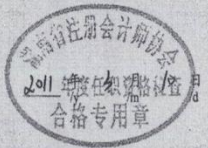 湖南省注册会计师协会
2011 年度任职资格检查
月 日
/m d
合格专用章